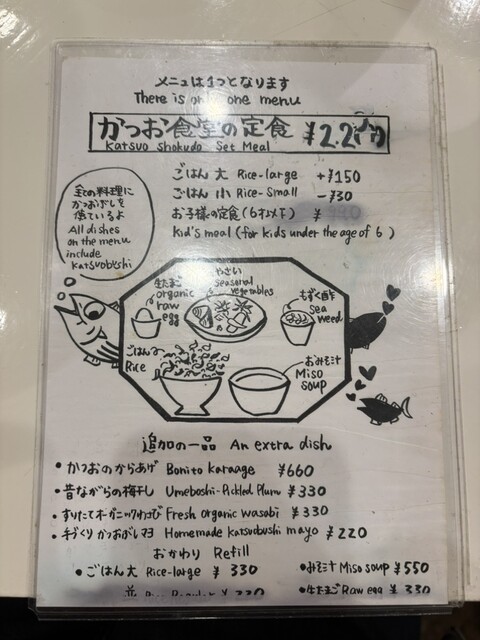 メニューは1つとなります
There is only one menu
かつお食堂の定食 ¥2.2
Katsuo Shokudo Set Meal
ごはん 大 Rice-large +¥150
ごはん 小 Rice-Small -¥30
お子様の定食(6才以下) ¥
Kid's meal (for kids under the age of 6)
全ての料理に
かつおだしを
使ているよ
All dishes
on the menu
include
Katsuobushi
生たまご
organic
raw
egg
やさい
seasonal
vegetables
もずく酢
Sea
weed
ごはん
Rice
おみそ汁
Miso
soup
追加の一品 An extra dish
• かつおのからあげ Bonito karaage ¥660
• 昔ながらの梅干し Umeboshi-Pickled Plum ¥330
• すりたてオーガニックわさび Fresh organic wasabi ¥330
• 手づくりかつおぶしマヨ Homemade katsuobushi mayo ¥220
おかわり Refill
• ごはん大 Rice-large ¥330
• みそ汁 Miso soup ¥550
• 生たまご Raw egg ¥330